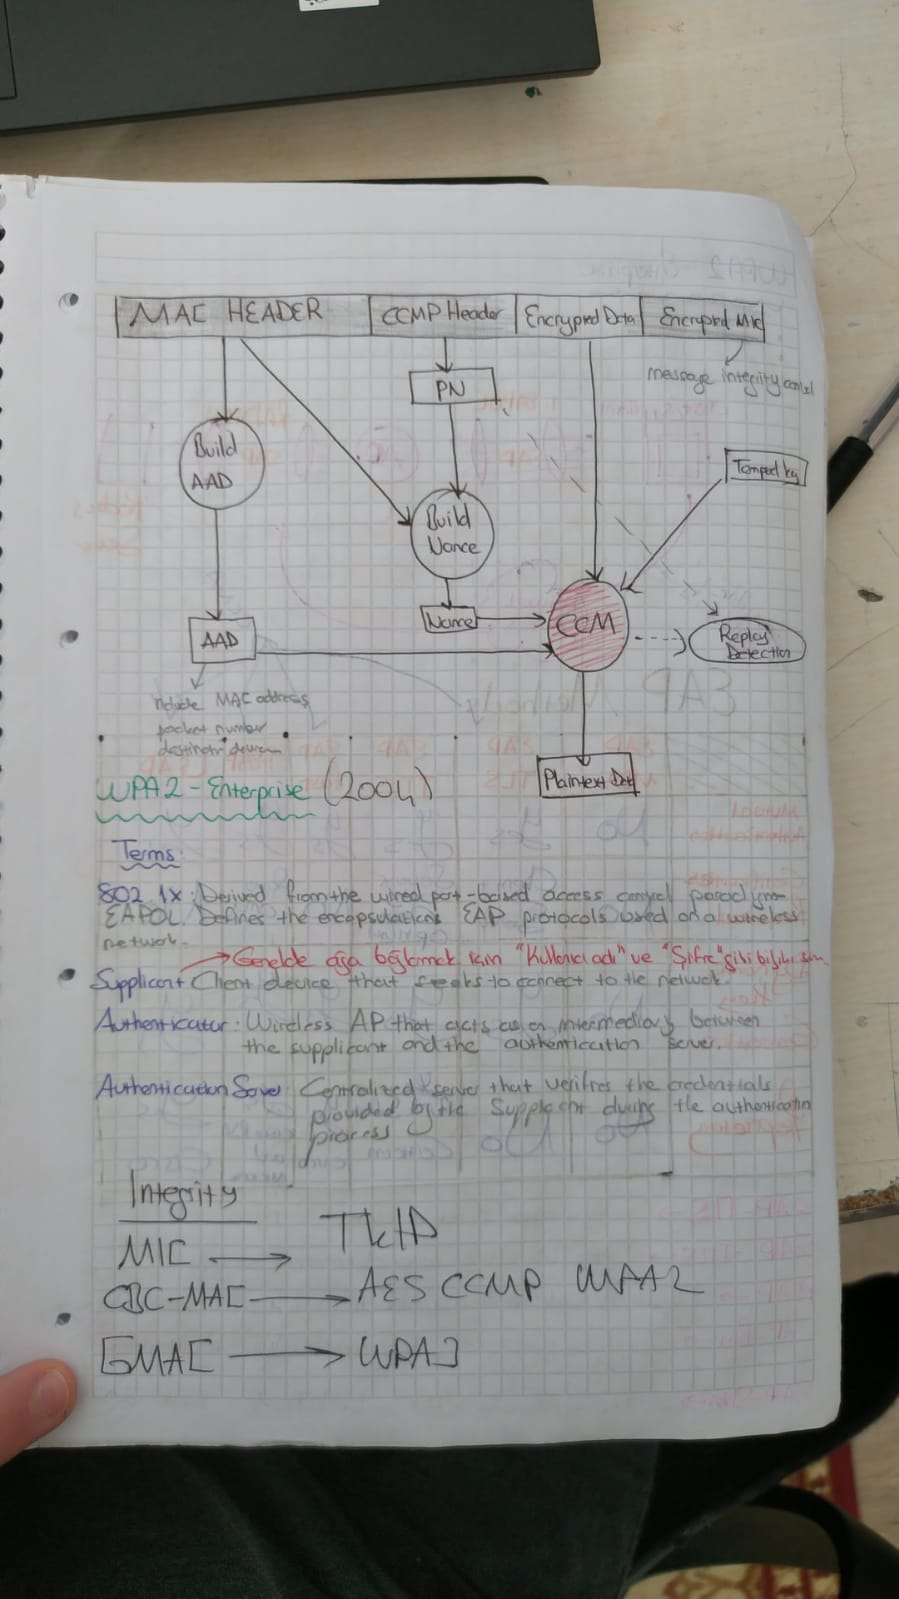 MAC HEADER
CCMP Header
Encrypted Data
Encrypted Mic
message integrity control
PN
Build
AAD
Temporal key
Build
Nonce
Nonce
CCM
AAD
Replay
Detection
include MAC address
packet number
destination device
Plaintext Data
WPA2 - Enterprise (2004)
Terms:
802.1x: Derived from the wired port-based access control paradigm
EAPOL. Defines the encapsulation of EAP protocols used on a wireless
network.
Genelde ağa bağlanmak için "Kullanıcı adı" ve "Şifre" gibi bilgileri
Supplicant Client device that seeks to connect to the network.
Authenticator: Wireless AP that acts as an intermediary between
the supplicant and the authentication server.
Authentication Server Centralized server that verifies the credentials
provided by the Supplicant during the authentication
process
Integrity
MIC TKIP
CBC-MAC AES CCMP WPA2
GMAC WPA3